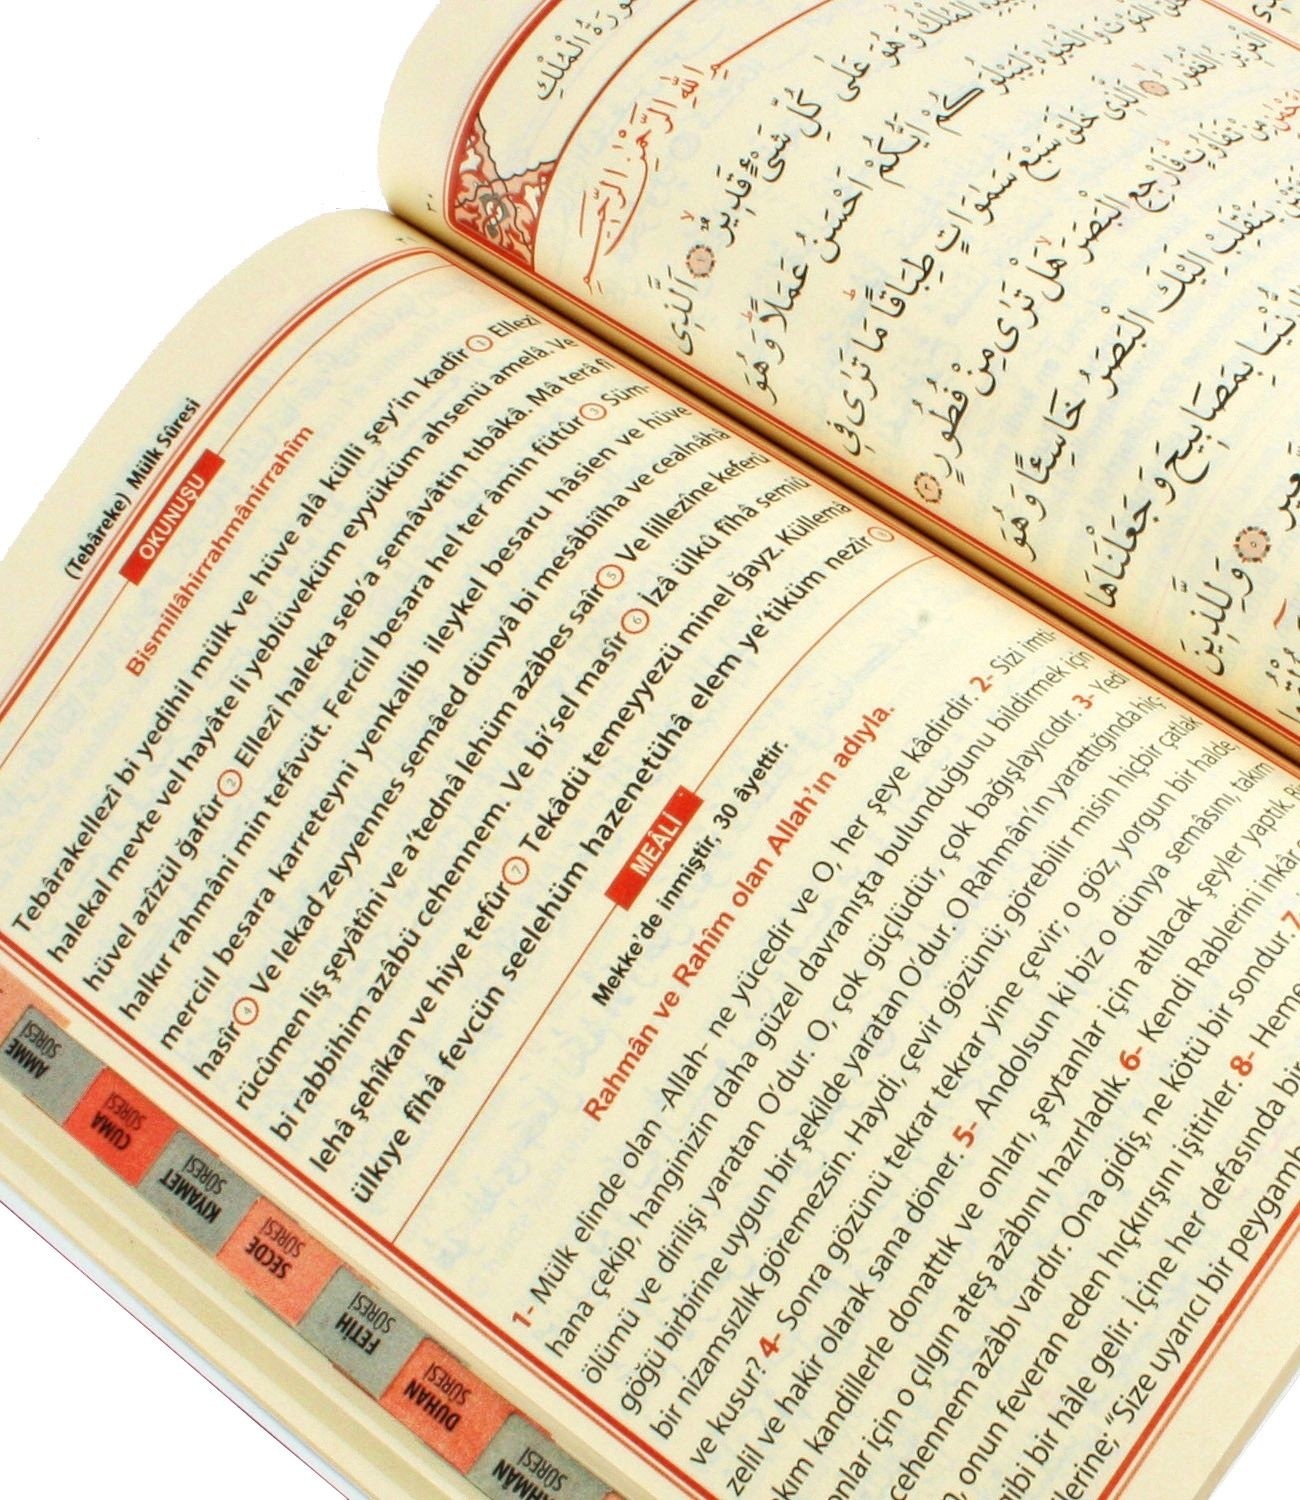 (Tebâreke) Mülk Sûresi
OKUNUŞU
Bismillâhirrahmânirrahîm
Tebârakellezî bi yedihil mülk ve hüve alâ külli şey'in kadîr 1 Ellezî
halekal mevte vel hayâte li yeblüveküm eyyüküm ahsenü amelâ. Ve
hüvel azîzül ğafûr 2 Ellezî haleka seb'a semâvâtin tıbâkâ. Mâ terâ fî
halkır rahmâni min tefâvüt. Ferciıl besara hel ter âmin fütûr 3 Süm-
merciıl besara karreteyni yenkalib ileykel besaru hâsien ve hüve
hasîr 4 Ve lekad zeyyennes semâed dünyâ bi mesâbîiha ve cealnâhâ
rücûmen liş şeyâtîni ve a'tednâ lehüm azâbes saîr 5 Ve lillezîne keferû
bi rabbihim azâbü cehennem. Ve bi'sel masîr 6 İzâ ülkû fîhâ semiû
lehâ şehîkan ve hiye tefûr 7 Tekâdü temeyyezü minel ğayz. Küllemâ
ülkıye fîhâ fevcün seelehüm hazenetühâ elem ye'tiküm nezîr 8
MEÂLİ
Mekke'de inmiştir, 30 âyettir.
Rahmân ve Rahîm olan Allah'ın adıyla.
1- Mülk elinde olan -Allah- ne yücedir ve O, her şeye kâdirdir. 2- Sizi imti-
hana çekip, hanginizin daha güzel davranışta bulunduğunu bildirmek için
ölümü ve dirilişi yaratan O'dur. O, çok güçlüdür, çok bağışlayıcıdır. 3- Yedi
göğü birbirine uygun bir şekilde yaratan O'dur. O Rahmân'ın yarattığında hiç-
bir nizamsızlık göremezsin. Haydi, çevir gözünü; görebilir misin hiçbir çatlak
ve kusur? 4- Sonra gözünü tekrar tekrar yine çevir; o göz, yorgun bir halde,
zelil ve hakir olarak sana döner. 5- Andolsun ki biz o dünya semâsını, takım
kım kandillerle donattık ve onları, şeytanlar için atılacak şeyler yaptık.
onlar için o çılgın ateş azabını hazırladık. 6- Kendi Rablerini inkâr
cehennem azâbı vardır. Ona gidiş, ne kötü bir sondur. 7
onun feveran eden hıçkırışını işitirler. 8- Heme
gibi bir hâle gelir. İçine her defasında bir
lerine; "Size uyarıcı bir peygamb
AMME SÛRESİ
CUMA SÛRESİ
KIYAMET SÛRESİ
SECDE SÛRESİ
FETİH SÛRESİ
DUHAN SÛRESİ
HMAN SÛRESİ
سُورَةُ الْمُلْكِ
اللّٰهِ الرَّحْمٰنِ الرَّحِيمِ
الْمُلْكُ وَهُوَ عَلٰى كُلِّ شَيْءٍ قَدِيرٌ ١ اَلَّذِى
الْمَوْتَ وَالْحَيٰوةَ لِيَبْلُوَكُمْ اَيُّكُمْ اَحْسَنُ عَمَلًا وَهُوَ
الْعَزِيزُ الْغَفُورُ ٢ اَلَّذِى خَلَقَ سَبْعَ سَمٰوَاتٍ طِبَاقًا مَا تَرٰى فِى
مِنْ تَفَاوُتٍ فَارْجِعِ الْبَصَرَ هَلْ تَرٰى مِنْ فُطُورٍ ٣
يَنْقَلِبْ اِلَيْكَ الْبَصَرُ خَاسِئًا وَهُوَ
الدُّنْيَا بِمَصَابِيحَ وَجَعَلْنَاهَا
السَّعِيرِ ٥ وَلِلَّذِينَ